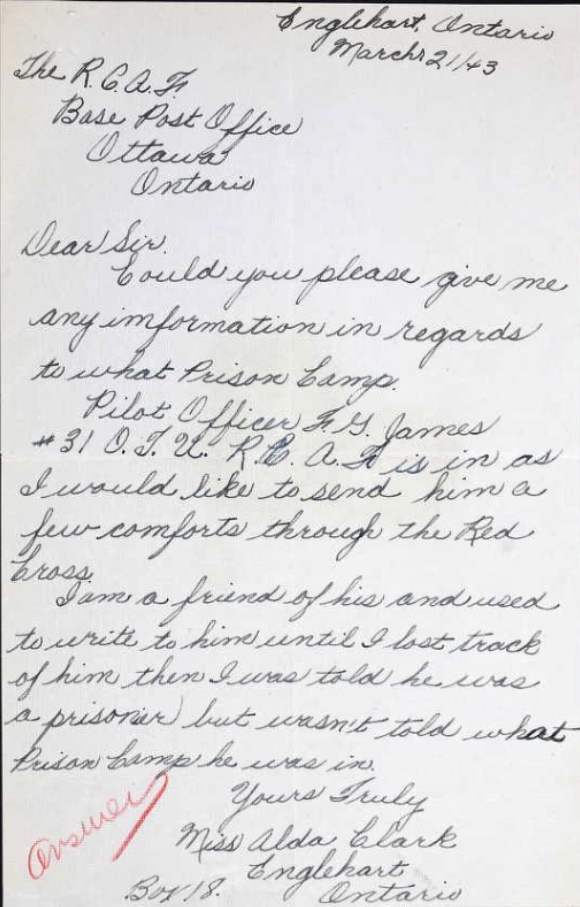 Englehart, Ontario
March 21/43
The R.C.A.F.
Base Post Office
Ottawa
Ontario
Dear Sir.
Could you please give me
any imformation in regards
to what Prison Camp.
Pilot Officer F. G. James
#31 O.T.U. R.C.A.F. is in as
I would like to send him a
few comforts through the Red
Cross.
I am a friend of his and used
to write to him until I lost track
of him then I was told he was
a prisoner) but wasn't told what
Prison Camp he was in.
Yours Truly
Miss Alda Clark
Englehart
Box 18. Ontario
Answer